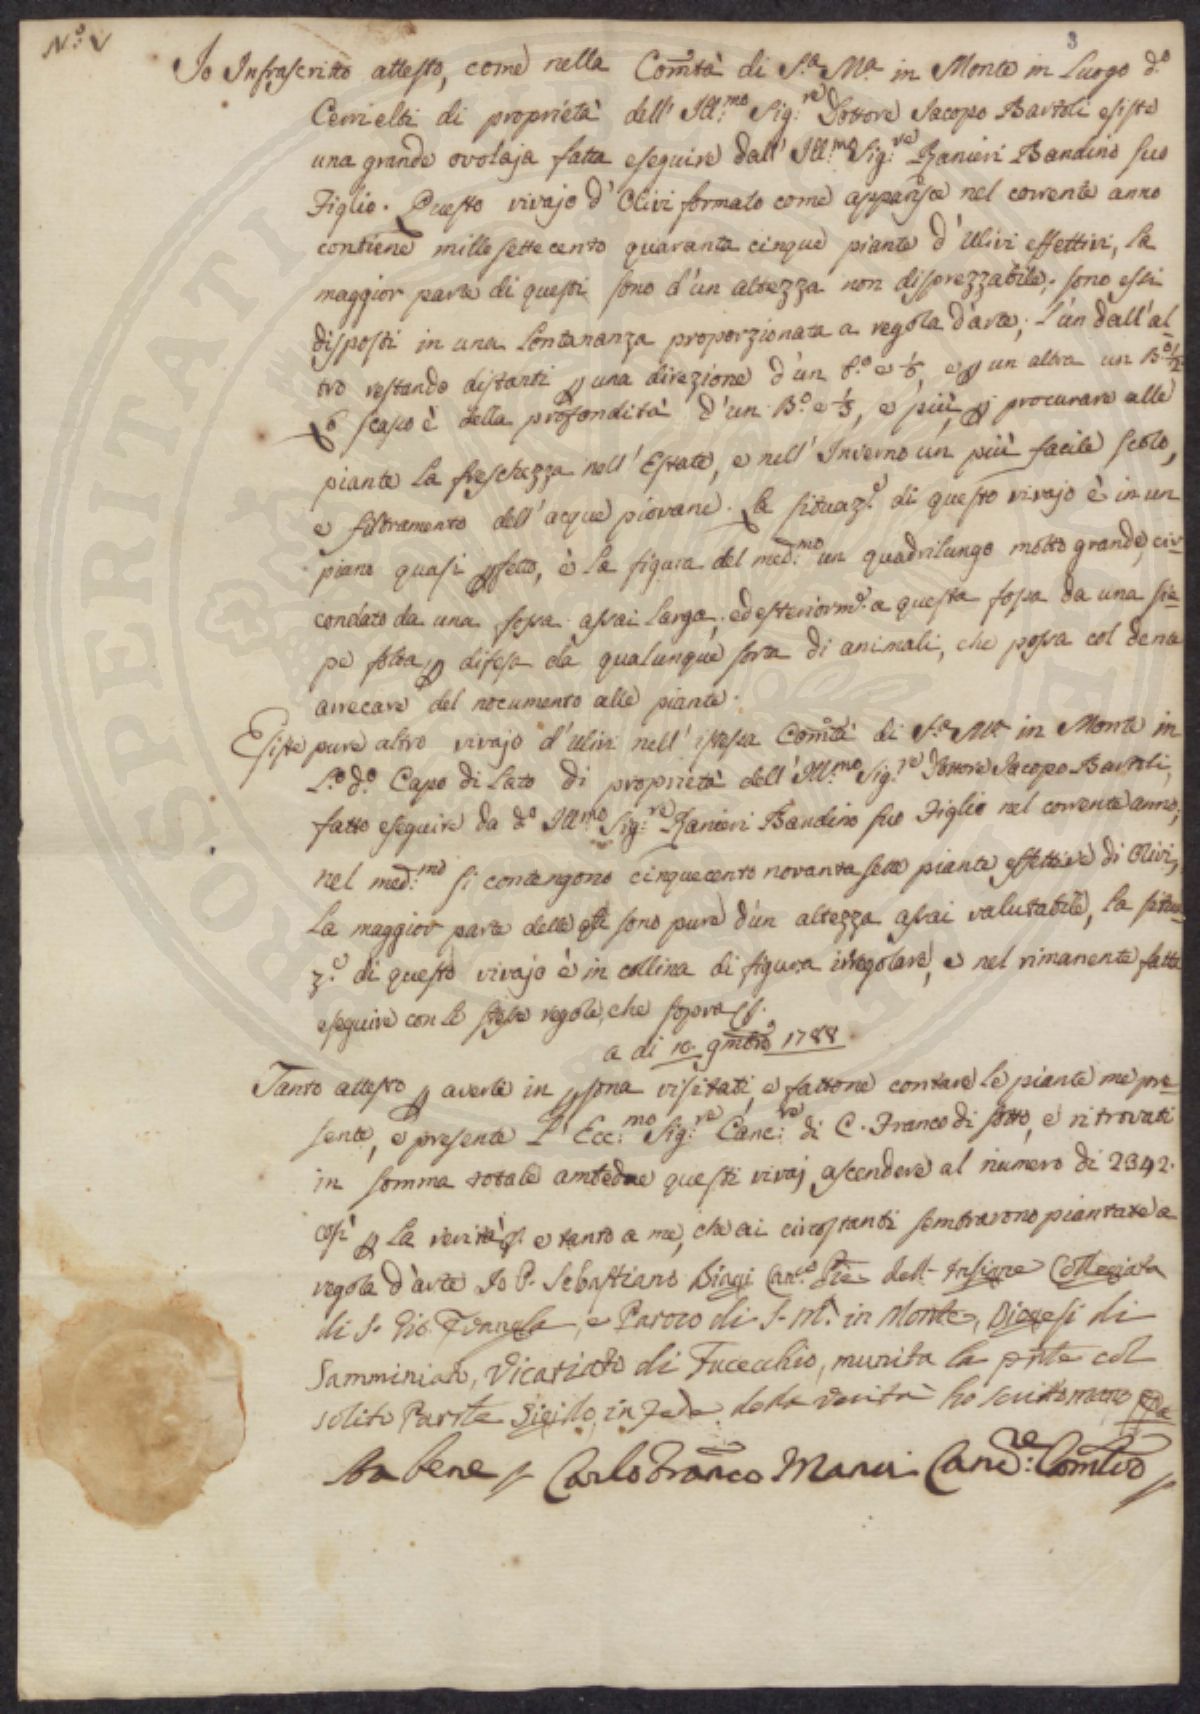 N.° V
3
Io Infrascritto attesto, come nella Com̃tà di S.ta M.a in Monte in Luogo d.o
Cerrielti di proprietà dell' Ill:mo Sig:re Dottore Jacopo Bartoli esiste
una grande ovolaja fatta eseguire dall' Ill:mo Sig:re Ranieri Bandino suo
Figlio. Questo vivajo d' Olivi formato come apparisce nel corrente anno
contiene mille settecento quaranta cinque piante d' Ulivi effettivi, la
maggior parte di questi sono d'un altezza non disprezzabile; sono essi
disposti in una lontananza proporzionata a regola d'arte; l'un dall'al-
tro restando distanti p una direzione d'un B.o e 1/3, e p un altra un B.o 1/2
Lo scasso è della profondità d'un B.o e 1/3, e più, p procurare alle
piante la freschezza nell' Estate, e nell' Inverno un più facile scolo,
e filtramento dell'acque piovane. La situaz.e di questo vivajo è in un
piano quasi pfetto, è la figura del med:mo un quadrilungo molto grande, cir-
condato da una fossa assai larga, ed esteriorm.e a questa fossa da una sie-
pe folta, p difesa da qualunque sorta di animali, che possa col dente
arrecare del nocumento alle piante.
Esiste pure altro vivajo d'ulivi nell' istessa Com̃tà di S.ta M.a in Monte in
L.o d.o Capo di Lato di proprietà dell' Ill:mo Sig:re Dottore Jacopo Bartoli,
fatto eseguire da d.o Ill:mo Sig:re Ranieri Bandino suo Figlio nel corrente anno,
nel med:mo si contengono cinquecento novanta sette piante effettive di Olivi,
la maggior parte delle qli sono pure d'un altezza assai valutabile, la situa-
z.e di questo vivajo è in collina di figura irregolare, e nel rimanente fatta
eseguire con le stesse regole, che sopra
a dì 10. 9mbre 1788
Tanto attesto p averle in psona visitati, e fattone contare le piante me pre-
sente, e presente L' Ecc:mo Sig:re Canc:re di C. Franco di sotto, e ritrovati
in somma totale ambedue questi vivaj ascendere al numero di 2342.
così p la verità e tanto a me, che ai circostanti sembrarono piantate a
regola d'arte Io P. Sebastiano Biagi Can.o dell' Insigne Collegiata
di S. Gio. e Paroco di S. M.a in Monte, Diocesi di
Samminiato, Vicariato di Fucecchio, munita la pnte col
solito Parrle Sigillo, in fede della verità ho scritto mano ppa
Sta bene Carlo Franco Manni Canc:re Com̃tivo